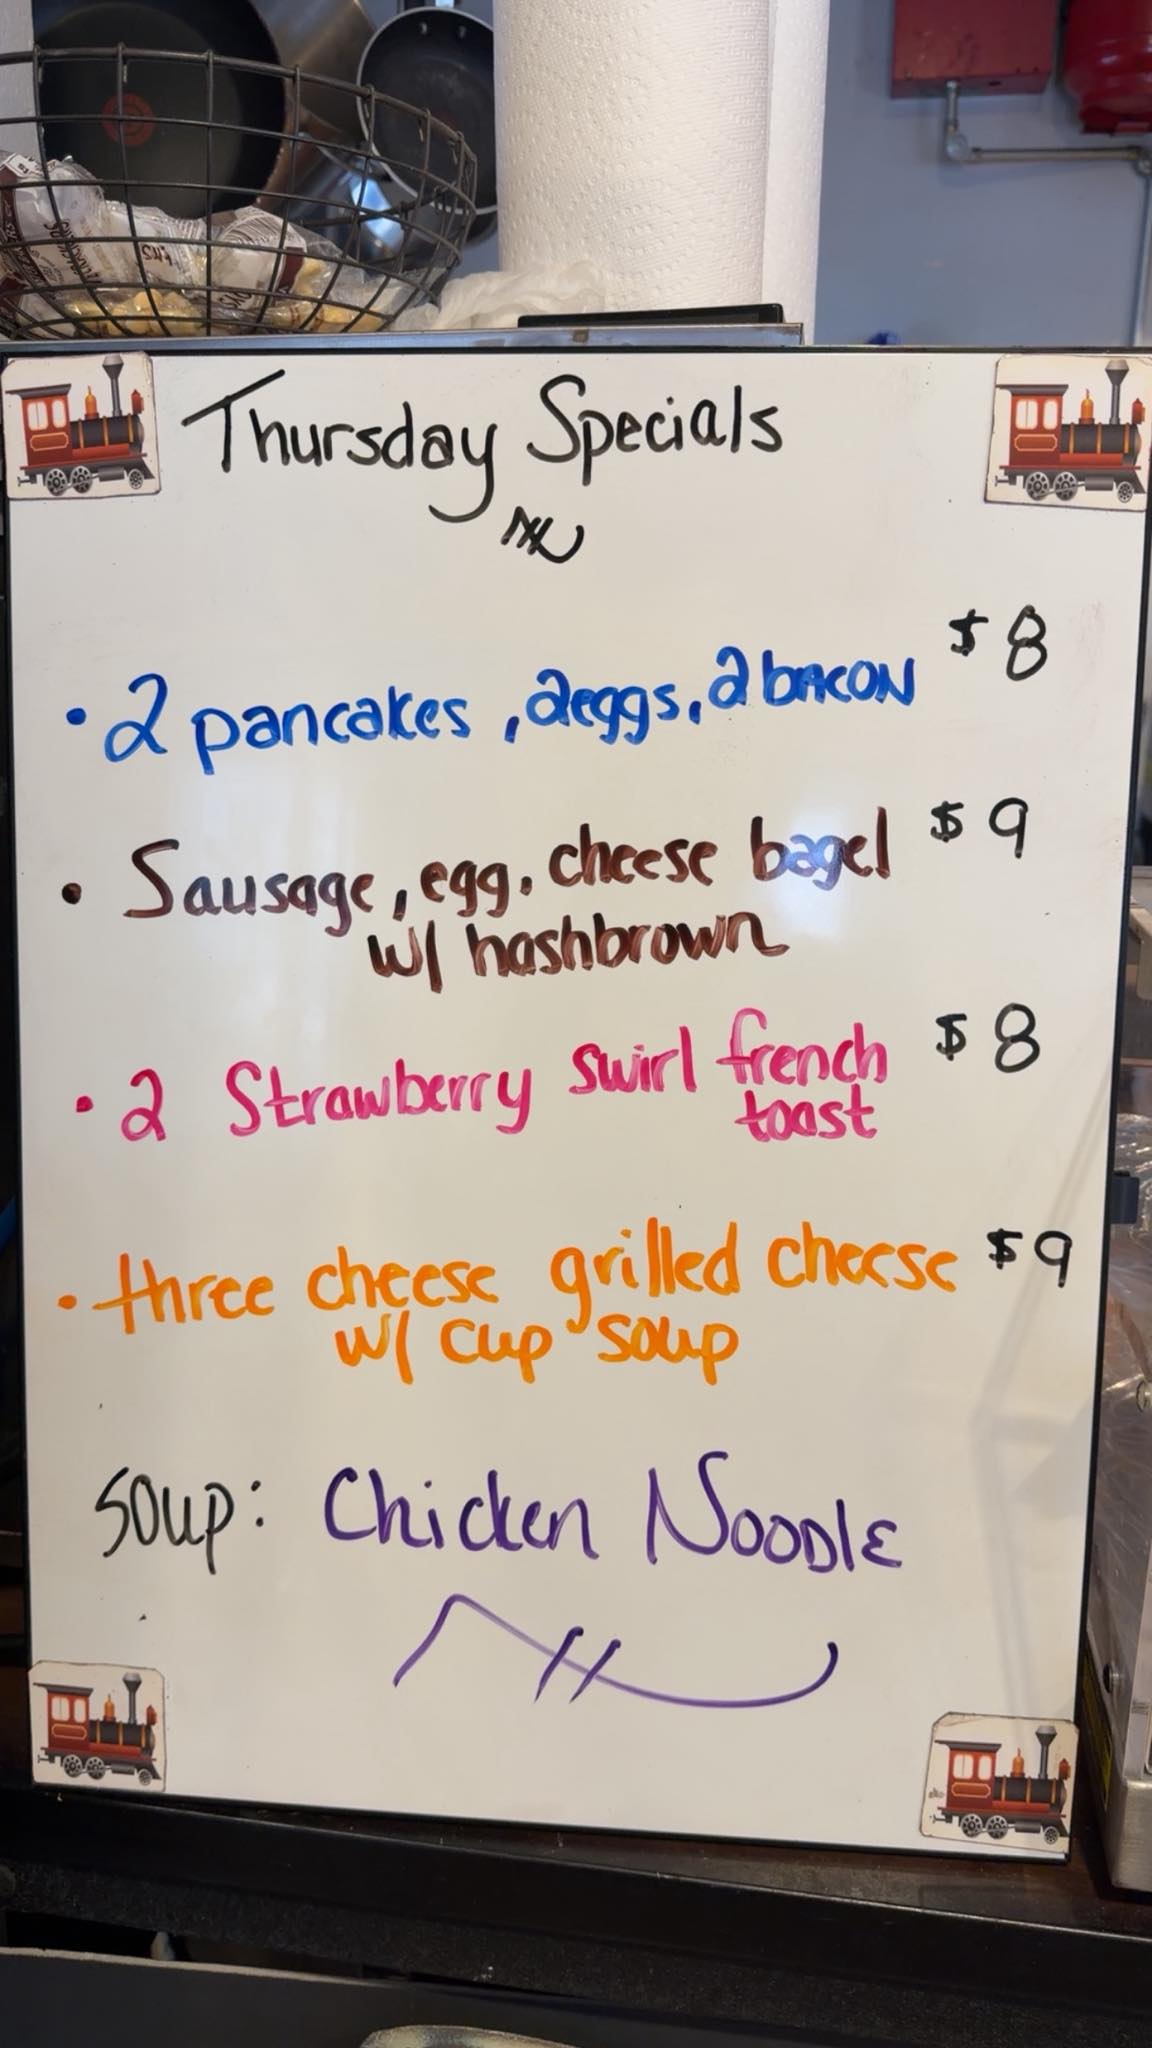 Thursday Specials
• 2 pancakes, 2 eggs, 2 bacon $8
• Sausage, egg, cheese bagel $9
w/ hashbrown
• 2 Strawberry swirl french $8
toast
• three cheese grilled cheese $9
w/ cup soup
Soup: Chicken Noodle